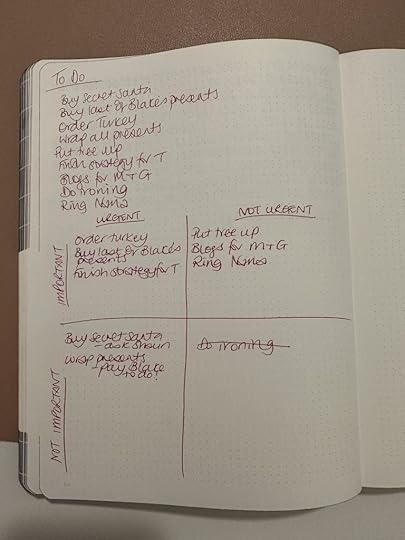 To Do
Buy secret santa
Buy last of Blakes presents
Order Turkey
Wrap all presents
Put tree up
Finish strategy for T
Blogs for M+G
Do ironing
Ring Nana
URGENT
NOT URGENT
IMPORTANT
Order turkey
Buy last of Blakes
presents
Finish strategy for T
Put tree up
Blogs for M+G
Ring Nana
NOT IMPORTANT
Buy secret santa
- ask Shaun
Wrap presents
- pay Blake
to do!
Do ironing